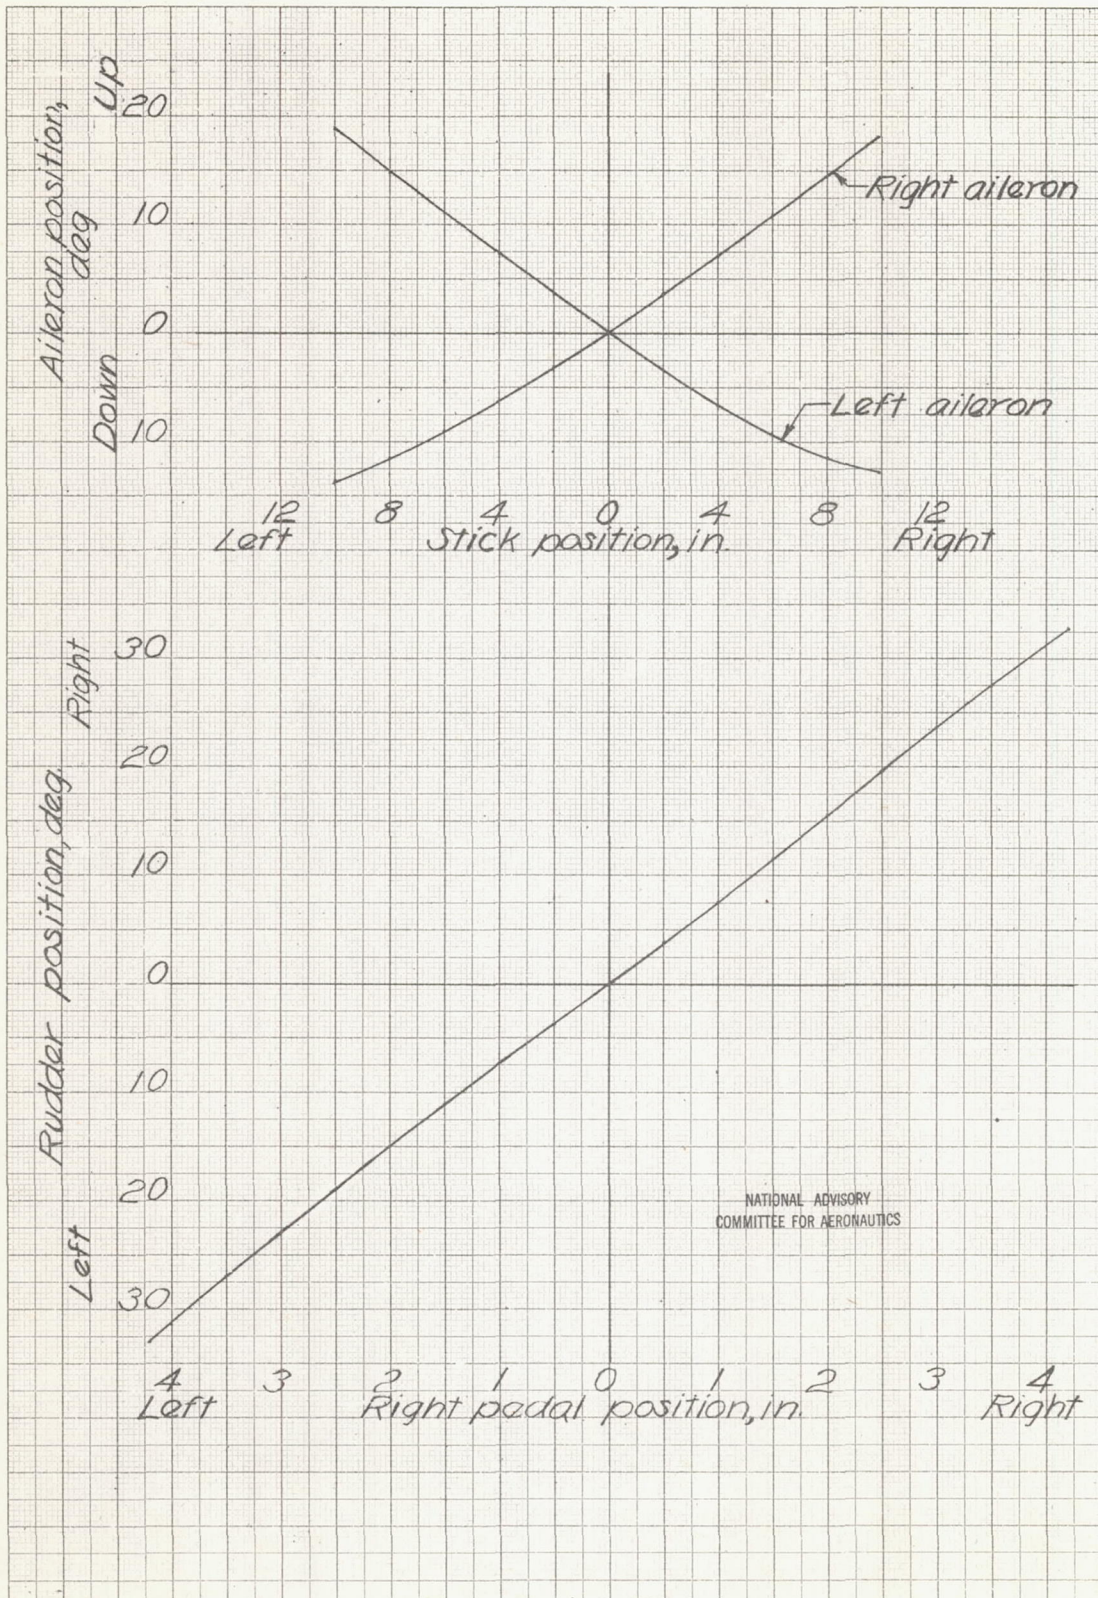 Aileron position,
deg
Up
Down
20
10
0
10
Right aileron
Left aileron
12 8 4 0 4 8 12
Left Stick position, in. Right
Rudder position, deg.
Right
Left
30
20
10
0
10
20
30
NATIONAL ADVISORY
COMMITTEE FOR AERONAUTICS
4 3 2 1 0 1 2 3 4
Left Right pedal position, in. Right